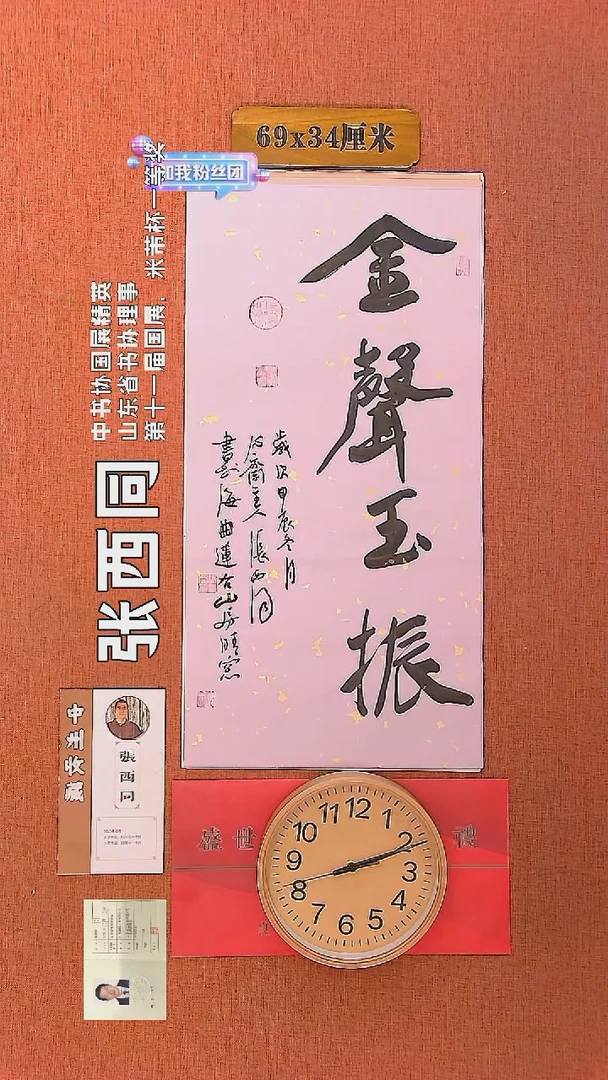 69x34厘米
加我粉丝团
金聲玉振
歲次甲辰冬月
張西同
書於海曲蓮石山房晴窓
中书协国展精英
山东省书协理事
第十一届国展、米芾杯一等奖
张西同
張西同
盛世
12
1
2
3
4
5
6
7
8
9
10
11